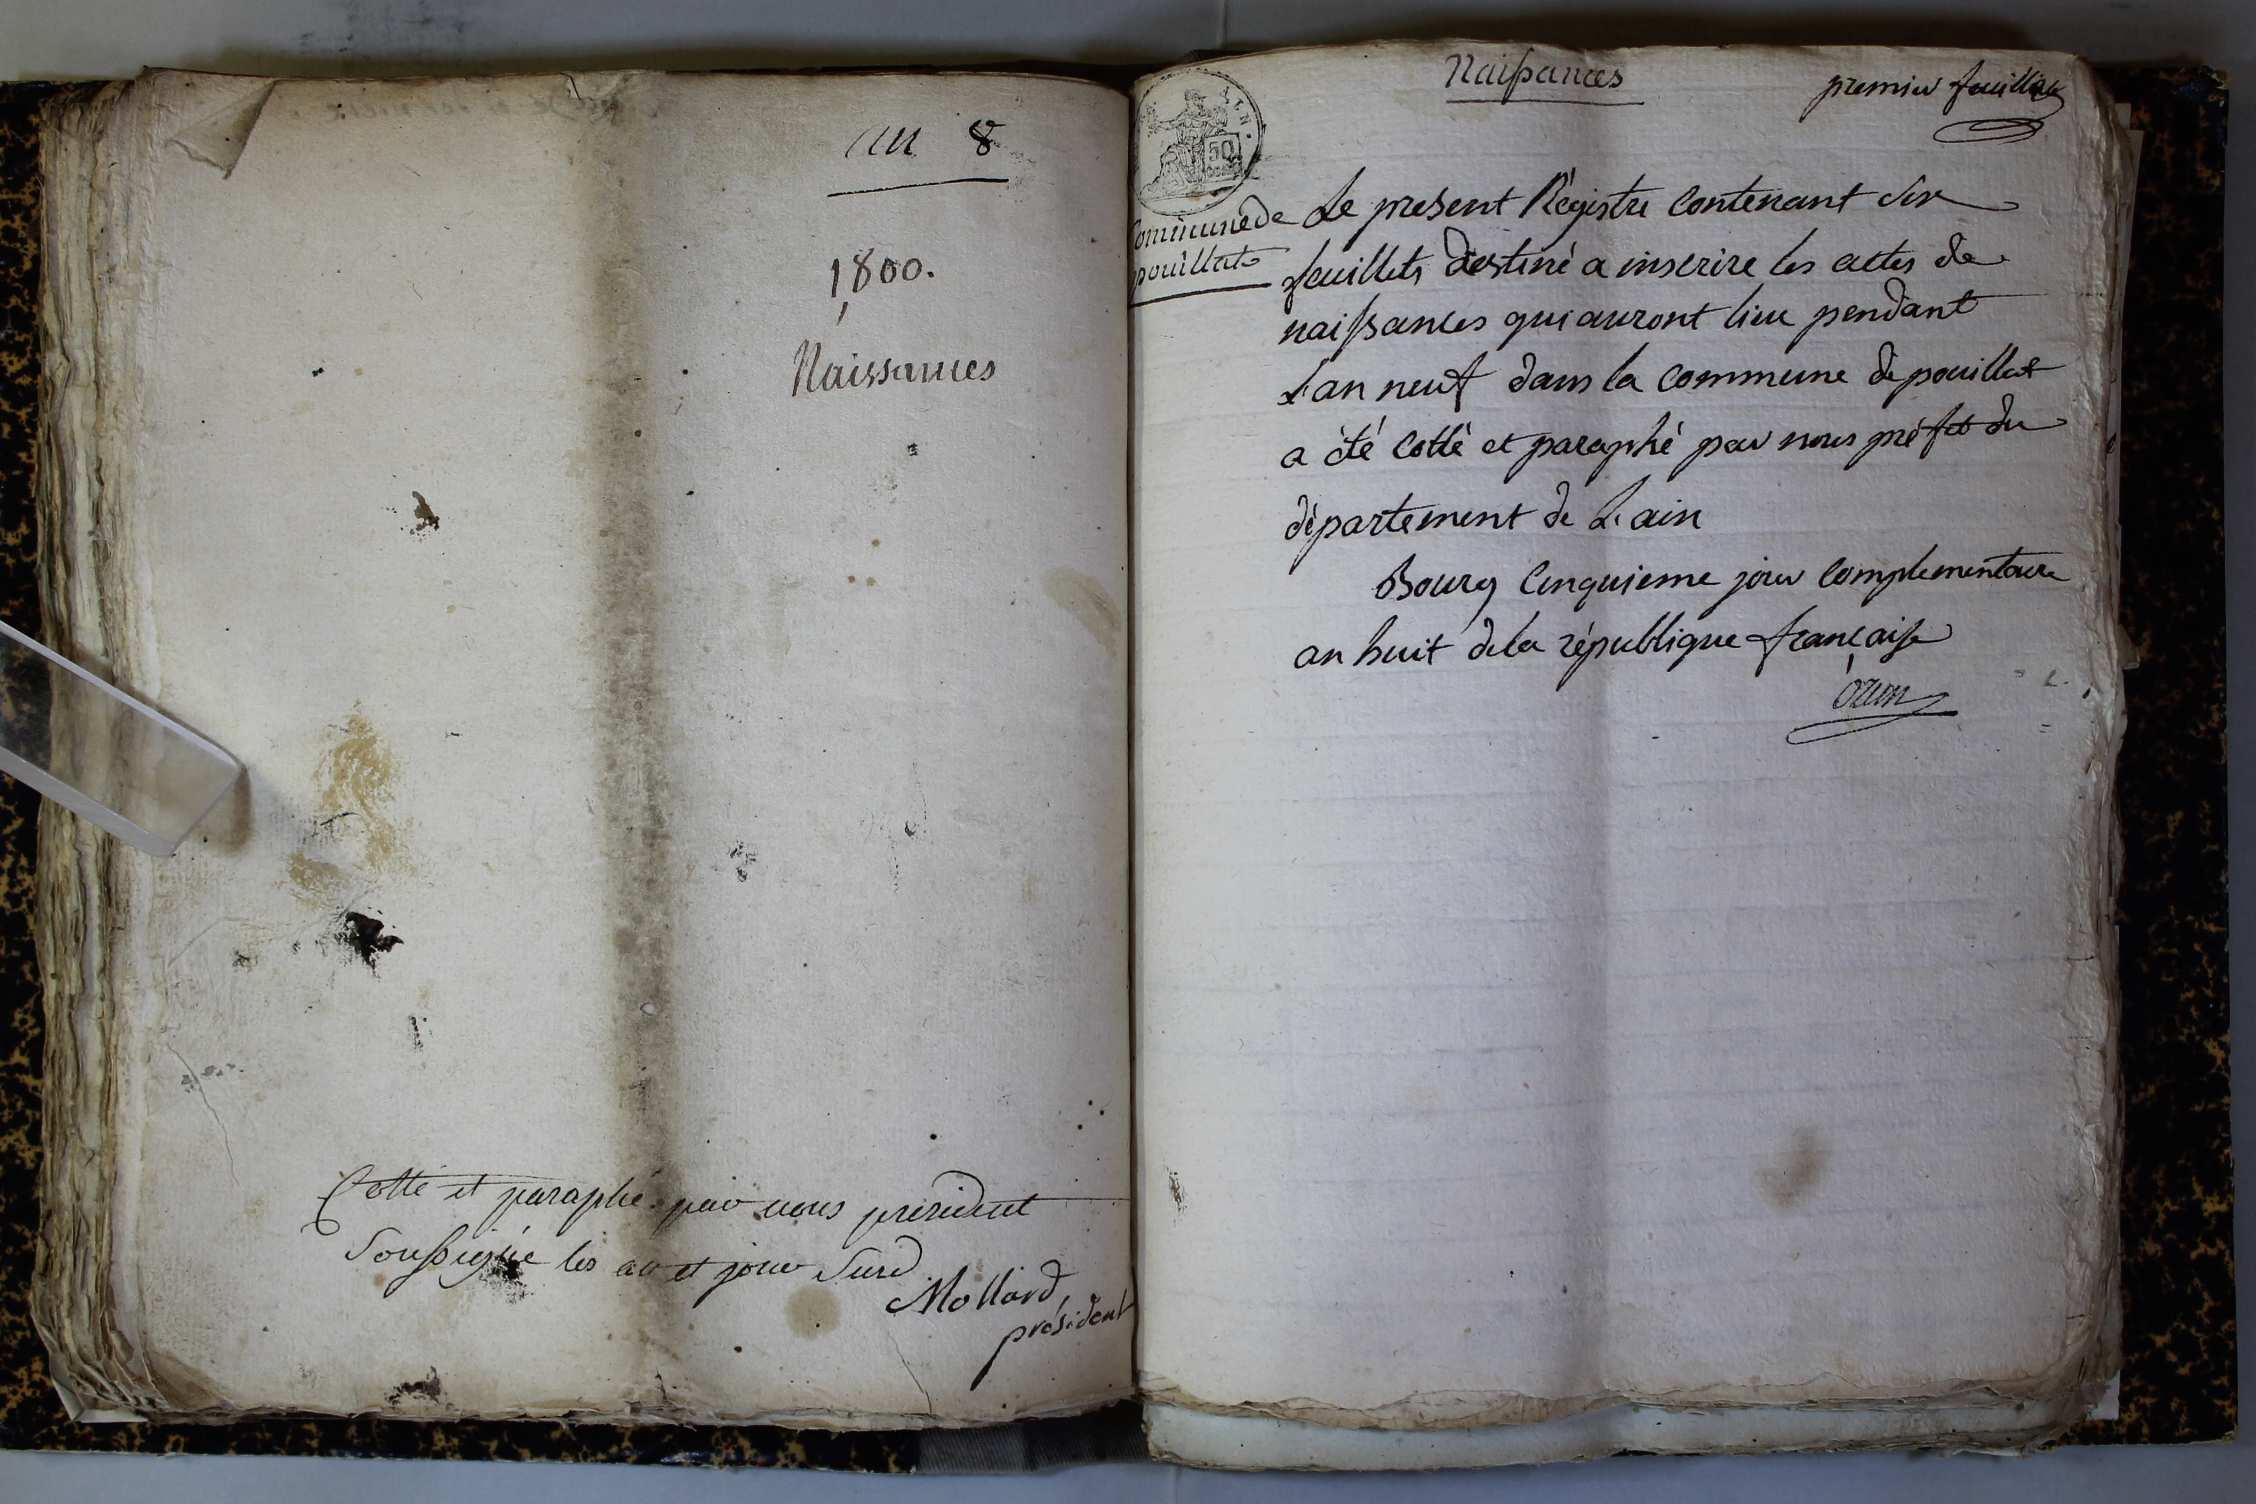 an 8
1800.
Naissances
Cotté et paraphé par nous président
Soussigné les an et jour Susd
Mollard
président
Naissances
premier feuillet
50
Commune de
pouillat
Le present Régistre contenant six
feuillets destiné a inscrire les actes de
naissances qui auront lieu pendant
L'an neuf dans la commune de pouillat
a été cotté et paraphé par nous préfet du
département de L'ain
Bourg cinquieme jour complementaire
an huit de la république française
Ozun